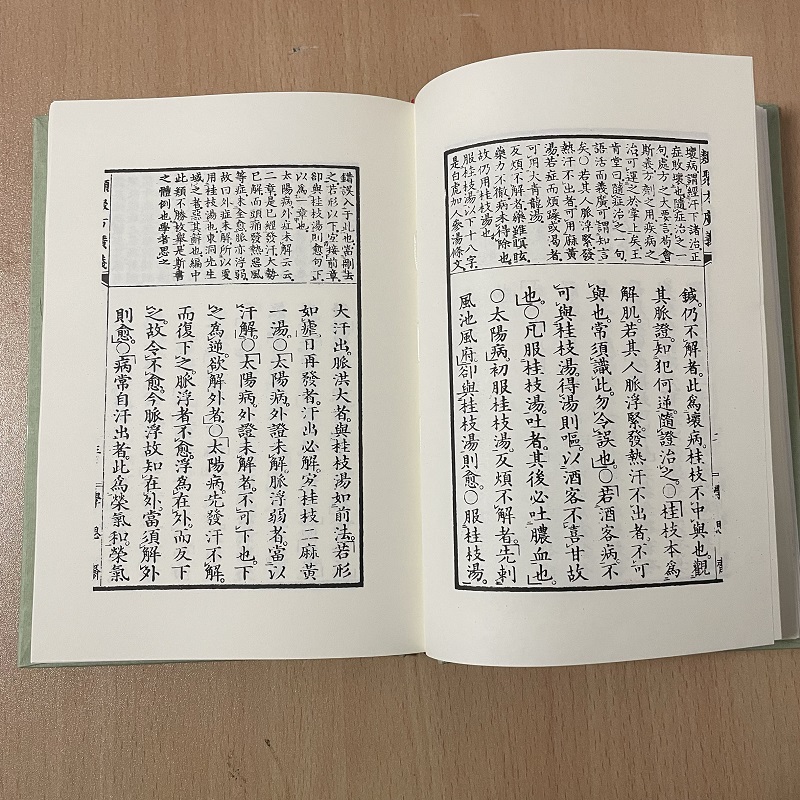 類聚方廣義
壞病謂經汗下諸治正
症敗壞也隨症治之一
句處方之大要言苟會
斯義方劑之用疾病之
治可運之於掌上矣王
肯堂曰隨症治之一句
語活而義廣可謂知言
矣○若其人脈浮緊發
熱汗不出者可用麻黃
湯若症而煩躁或渴者
可用大青龍湯
反煩不解者藥雖瞑眩
藥力不徹病未得除也
故仍用桂枝湯也
服桂枝湯以下十八字
是白虎加人參湯條文
鍼。仍不解者。此爲壞病。桂枝不中與也。觀
其脈證。知犯何逆。隨證治之。○桂枝本爲
解肌。若其人脈浮緊。發熱汗不出者。不可
與也。常須識此。勿令誤也。○若酒客病。不
可與桂枝湯。得湯則嘔。以酒客不喜甘故
也。○凡服桂枝湯吐者。其後必吐膿血也。
○太陽病。初服桂枝湯。反煩不解者。先刺
風池風府。卻與桂枝湯則愈。○服桂枝湯。
錯誤入于此也當刪去
之若形以下宜接前章
卻與桂枝湯則愈句正
以爲一章也
太陽病外症未解云云
二章是已經發汗大勢
已解而頭痛發熱惡風
等症未全愈脈亦浮弱
故曰外症未解所以更
用桂枝湯也東洞先生
此類不勝枚舉是斯書
之體例也學者思之
大汗出。脈洪大者。與桂枝湯如前法。若形
如瘧。日再發者。汗出必解。宜桂枝二麻黃
一湯。○太陽病。外證未解。脈浮弱者。當以
汗解。○太陽病。外證未解者。不可下也。下
之爲逆。欲解外者。○太陽病。先發汗不解。
而復下之。脈浮者不愈。浮爲在外。而反下
之。故令不愈。今脈浮。故知在外。當須解外
則愈。○病常自汗出者。此爲榮氣和。榮氣
三
學思齋